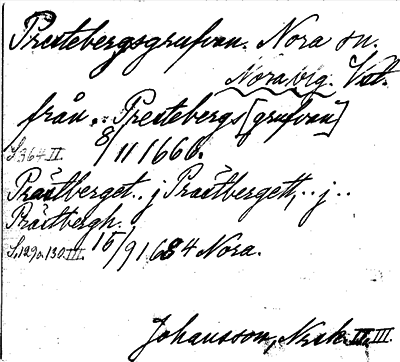 Prestebergsgrufvan. Nora sn.
Nora brg. Vstm.
från .. Prestebergs [grufvan]
S. 364 II. 8/11 1666.
Prästberget .. j Prästbergett, .. j ..
Prästbergh.
S. 129 o. 130. III. 15/9 1684 Nora.
Johansson, Norak. II, III.